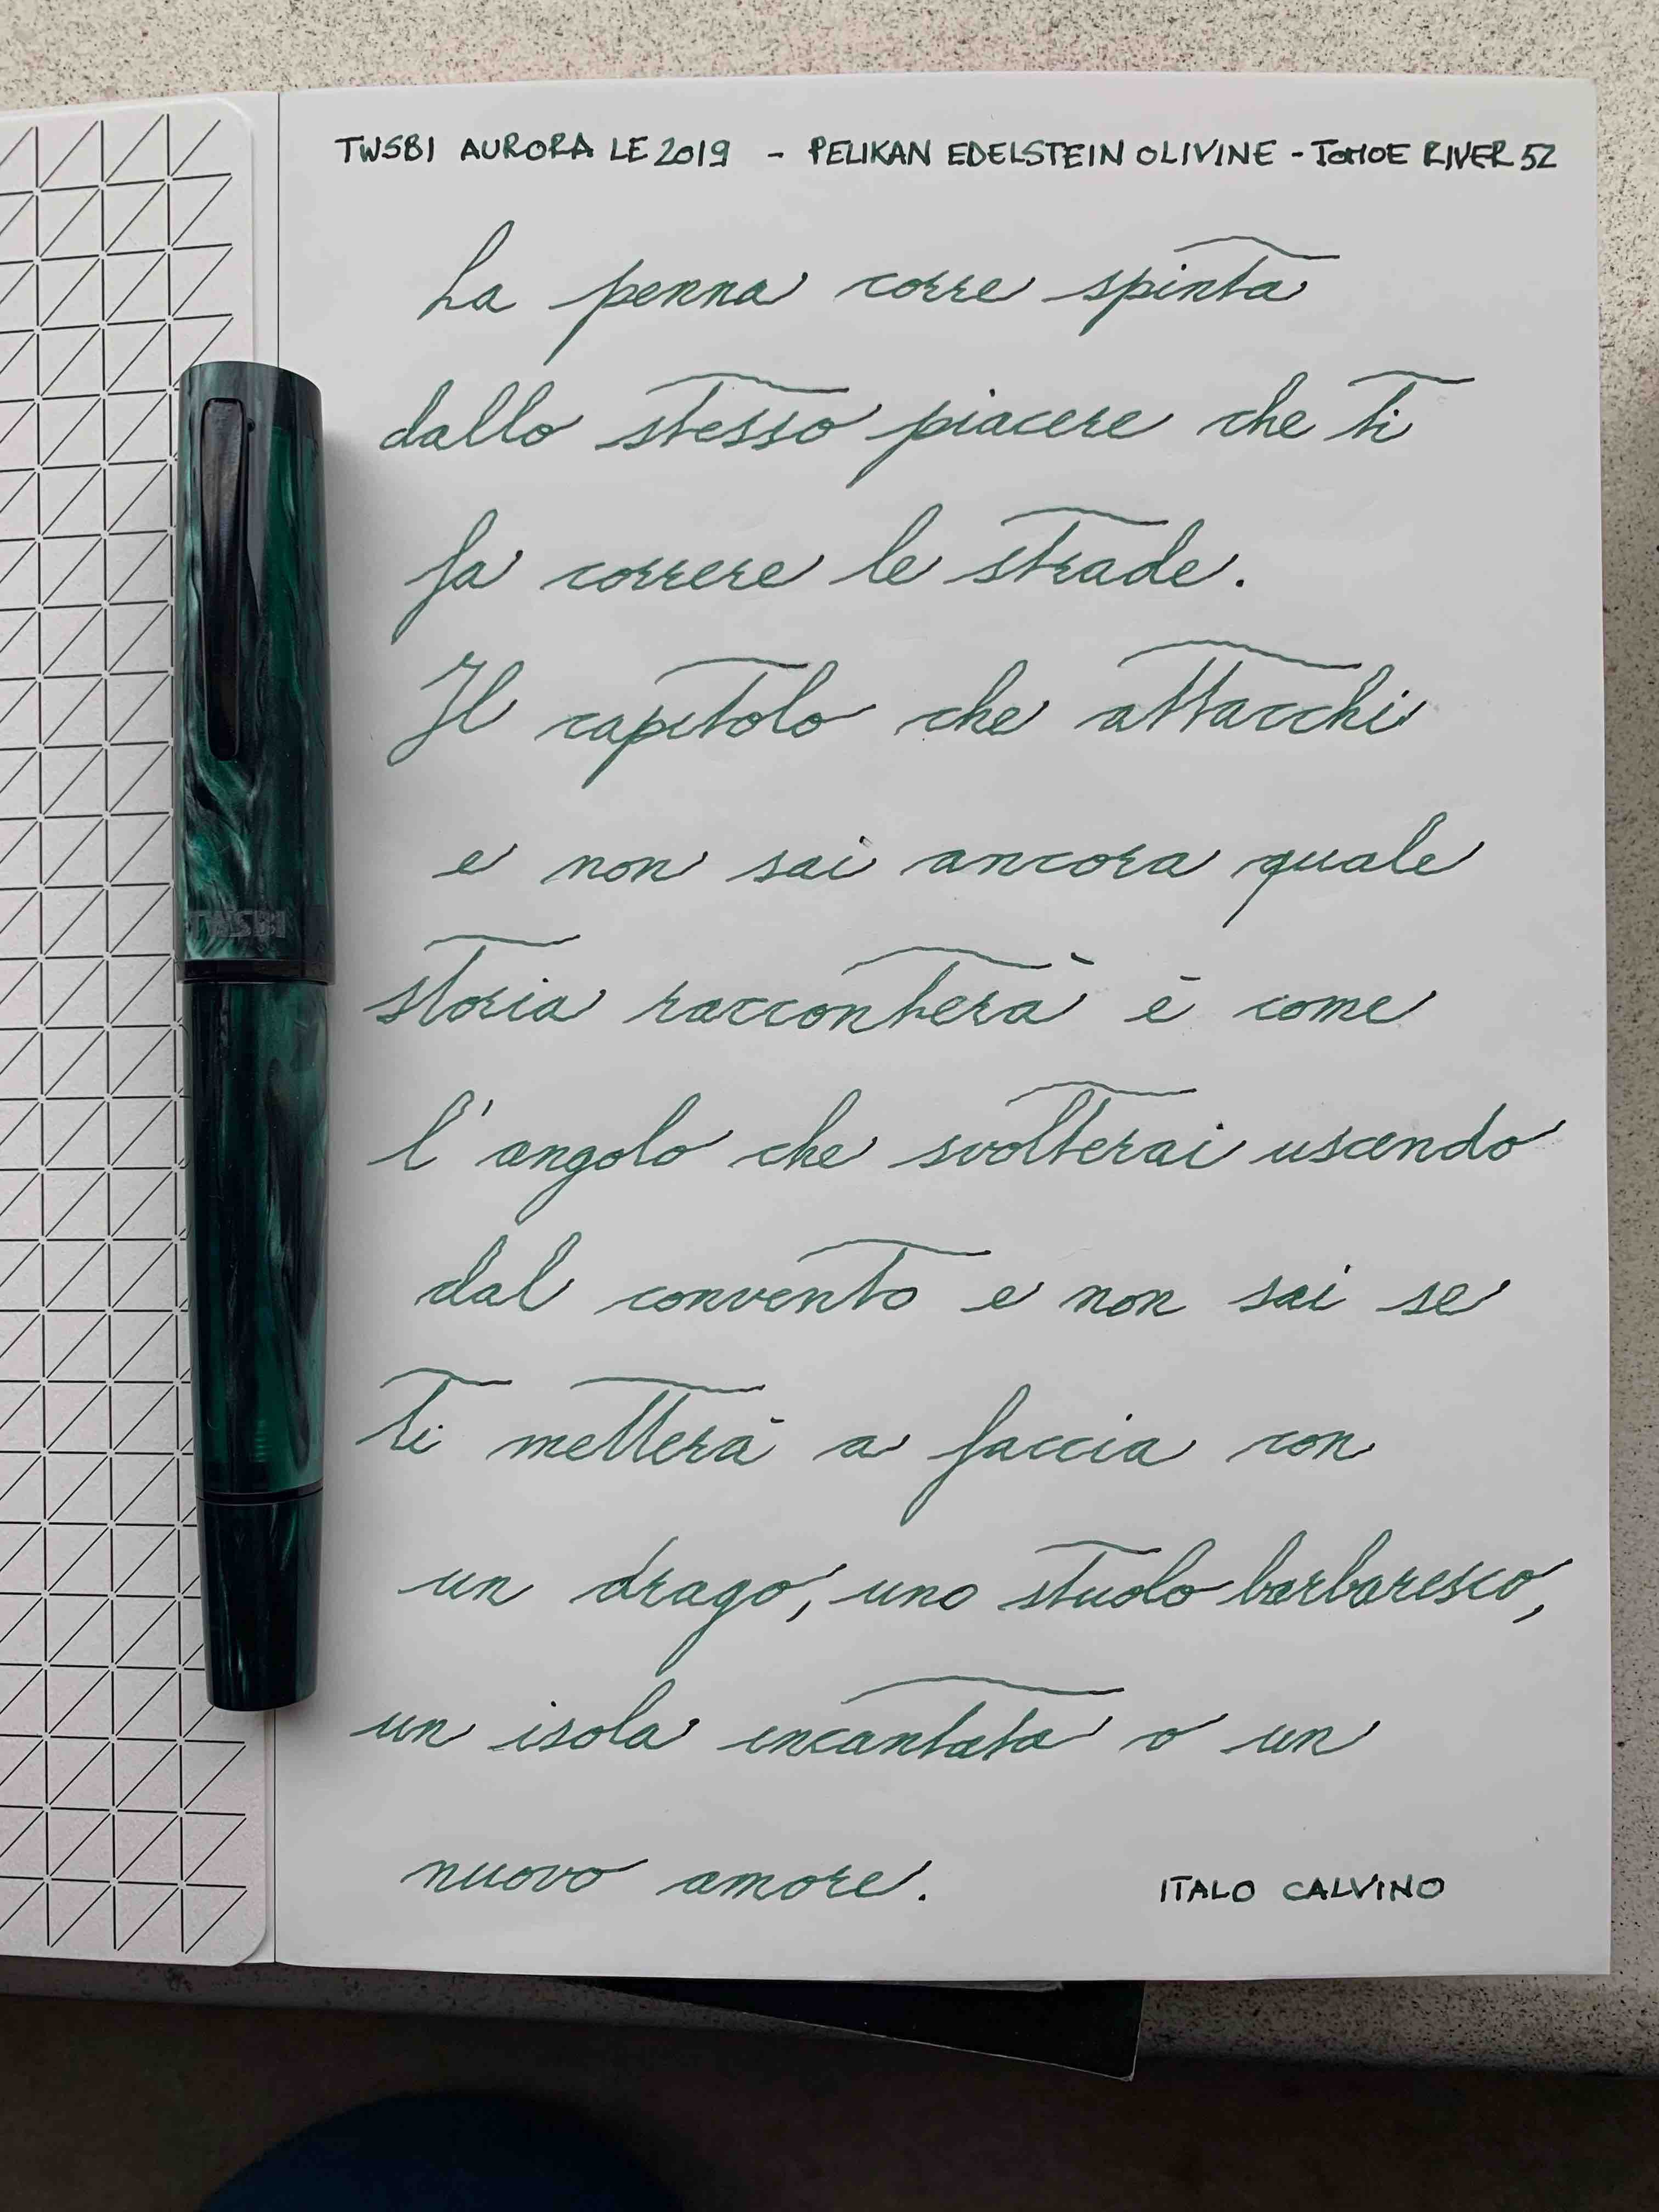 TWSBI AURORA LE 2019 - PELIKAN EDELSTEIN OLIVINE - TOMOE RIVER 52
La penna corre spinta
dallo stesso piacere che ti
fa correre le strade.
Il capitolo che attacchi
e non sai ancora quale
storia racconterà è come
l'angolo che svolterai uscendo
dal convento e non sai se
ti metterà a faccia con
un drago, uno stuolo barbaresco,
un isola incantata o un
nuovo amore.
ITALO CALVINO
TWSBI